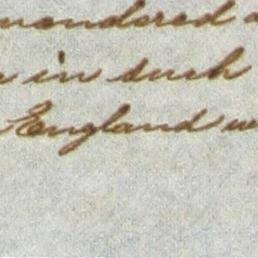 wondered
in such
England